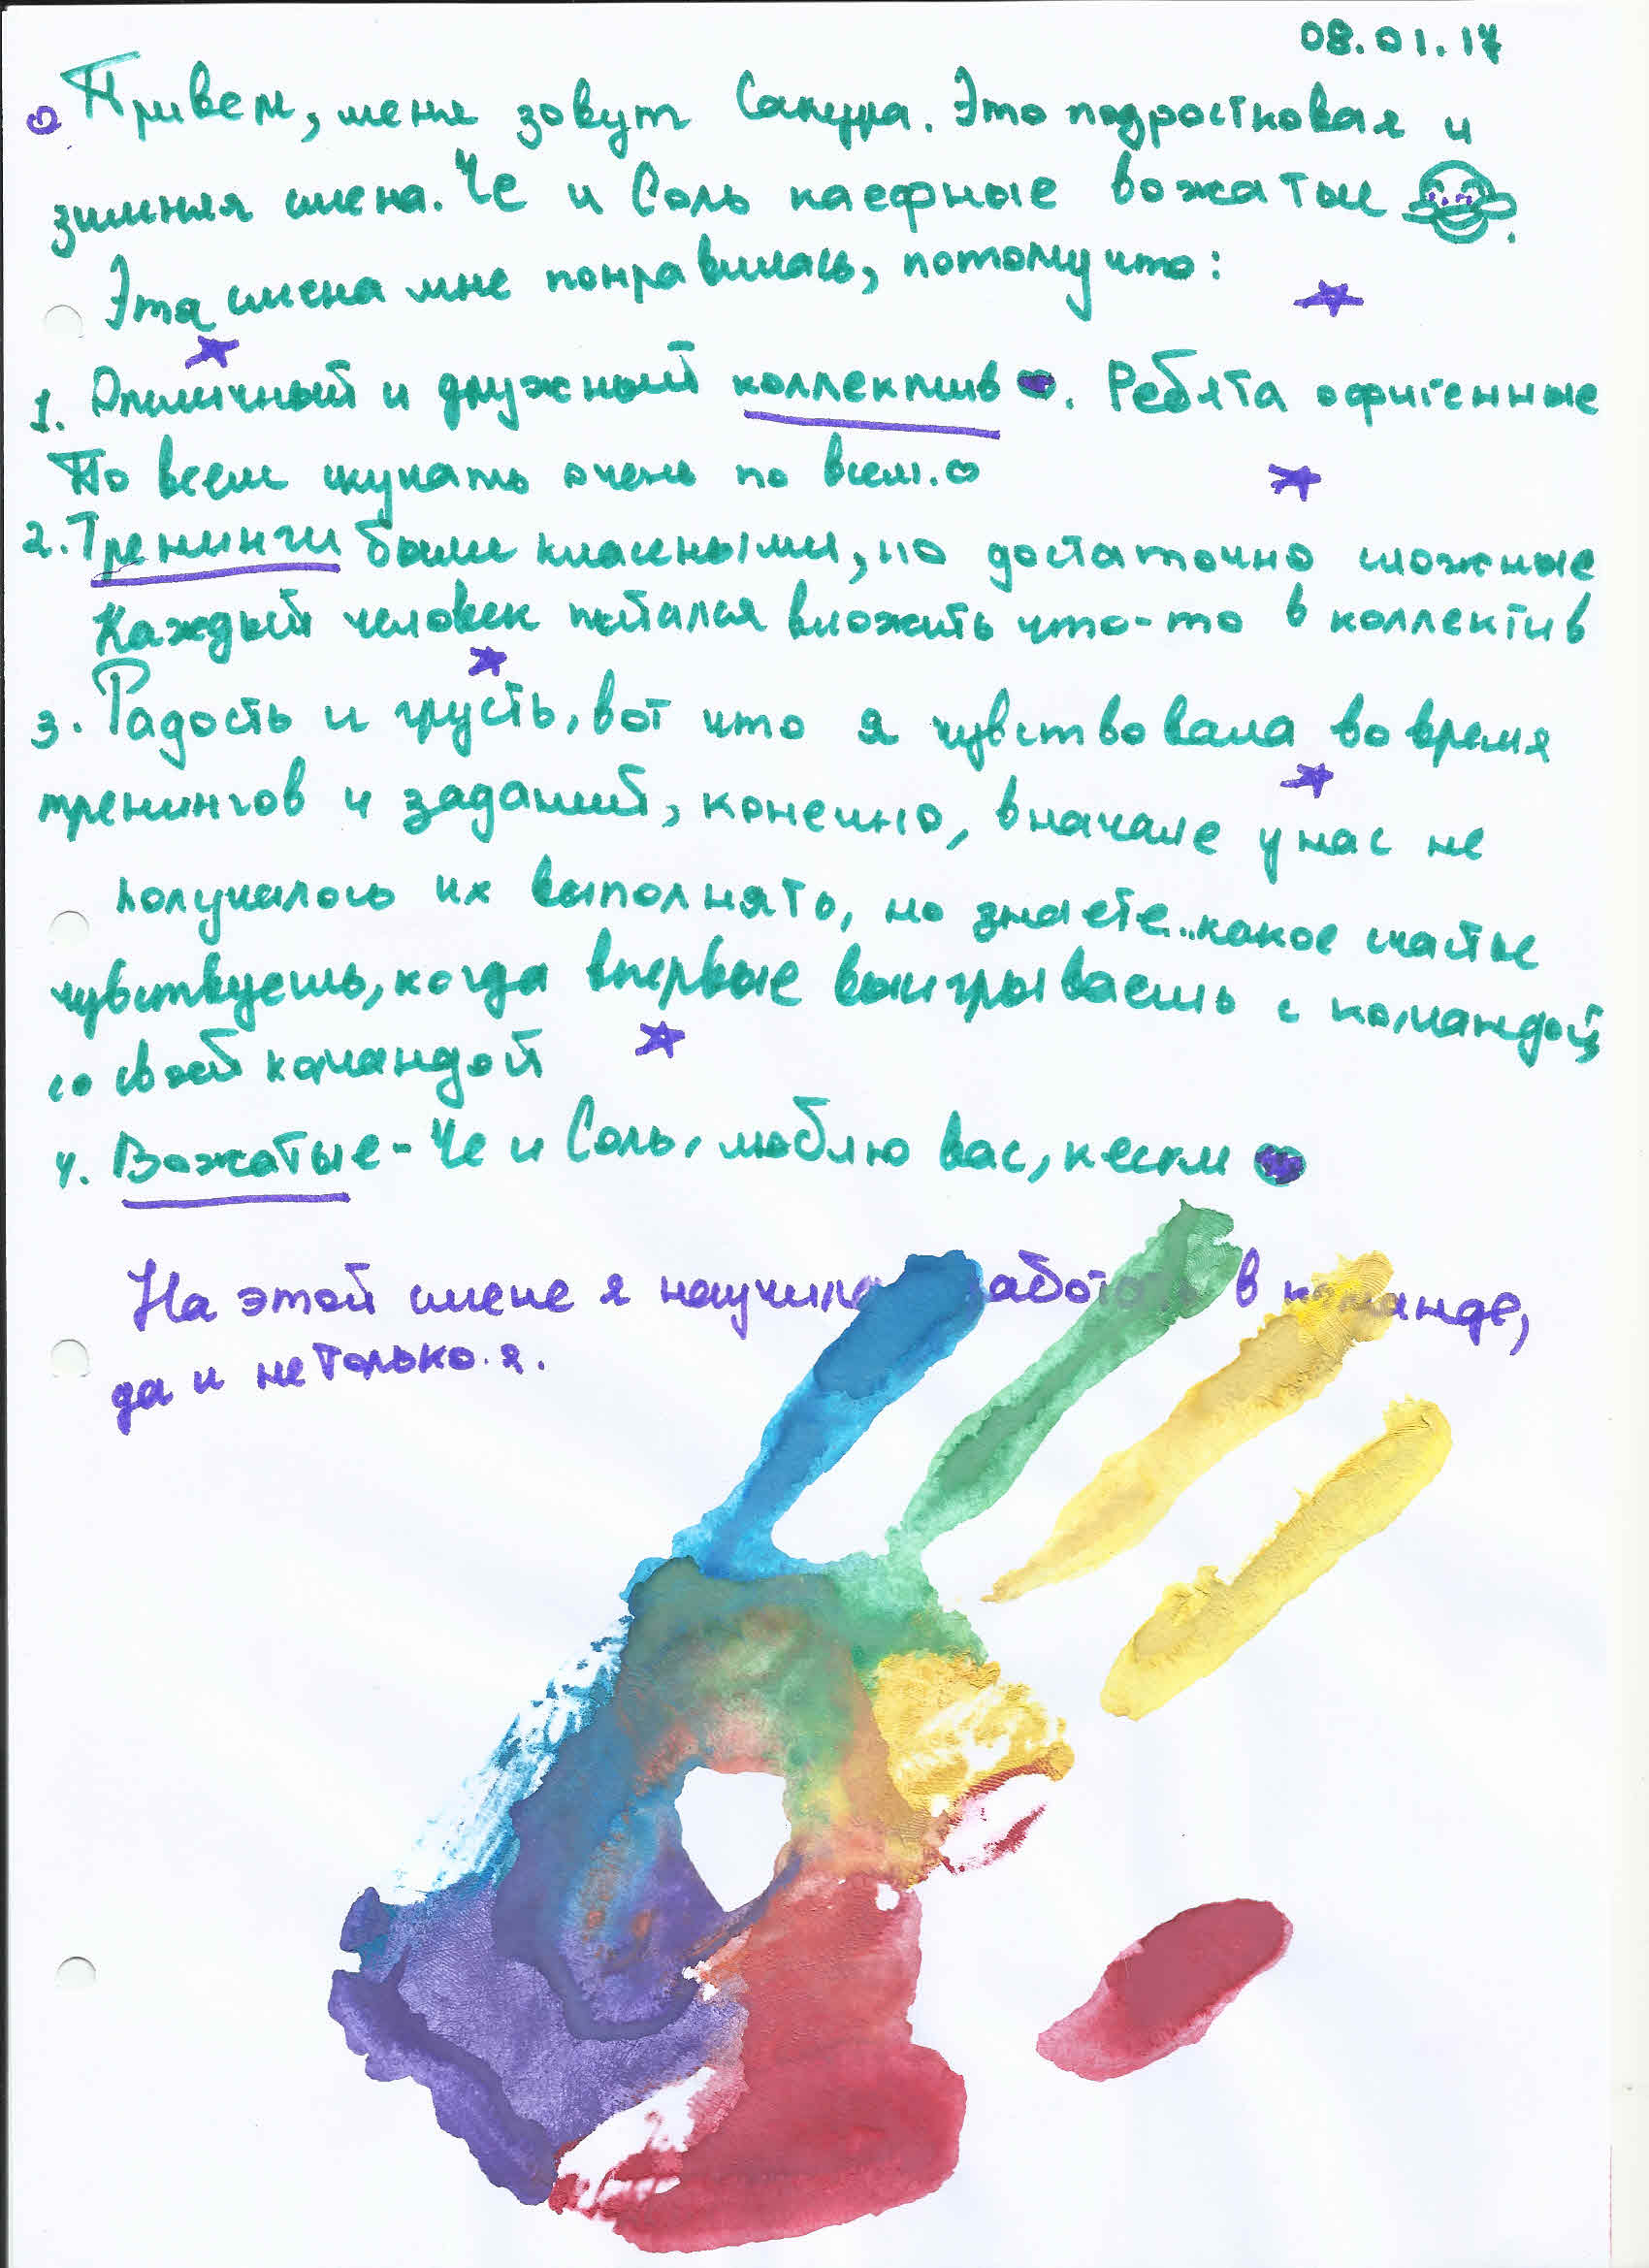 08.01.17
Привет, меня зовут Сакура. Это подростковая и
зимняя смена. Че и Соль каефные вожатые
Эта смена мне понравилась, потому что:
1. Отличный и дружный коллектив. Ребята офигенные
По всем скучать очень по всем.
2. Тренинги были классными, но достаточно сложные
Каждый человек пытался вложить что-то в коллектив
3. Радость и грусть, вот что я чувствовала во время
тренингов и заданий, конечно, вначале у нас не
получалось их выполнять, но знаете.. какое счастье
чувствуешь, когда впервые выигрываешь с командой,
со своей командой
4. Вожатые - Че и Соль, люблю вас,
На этой смене я в команде,
да и не только я.